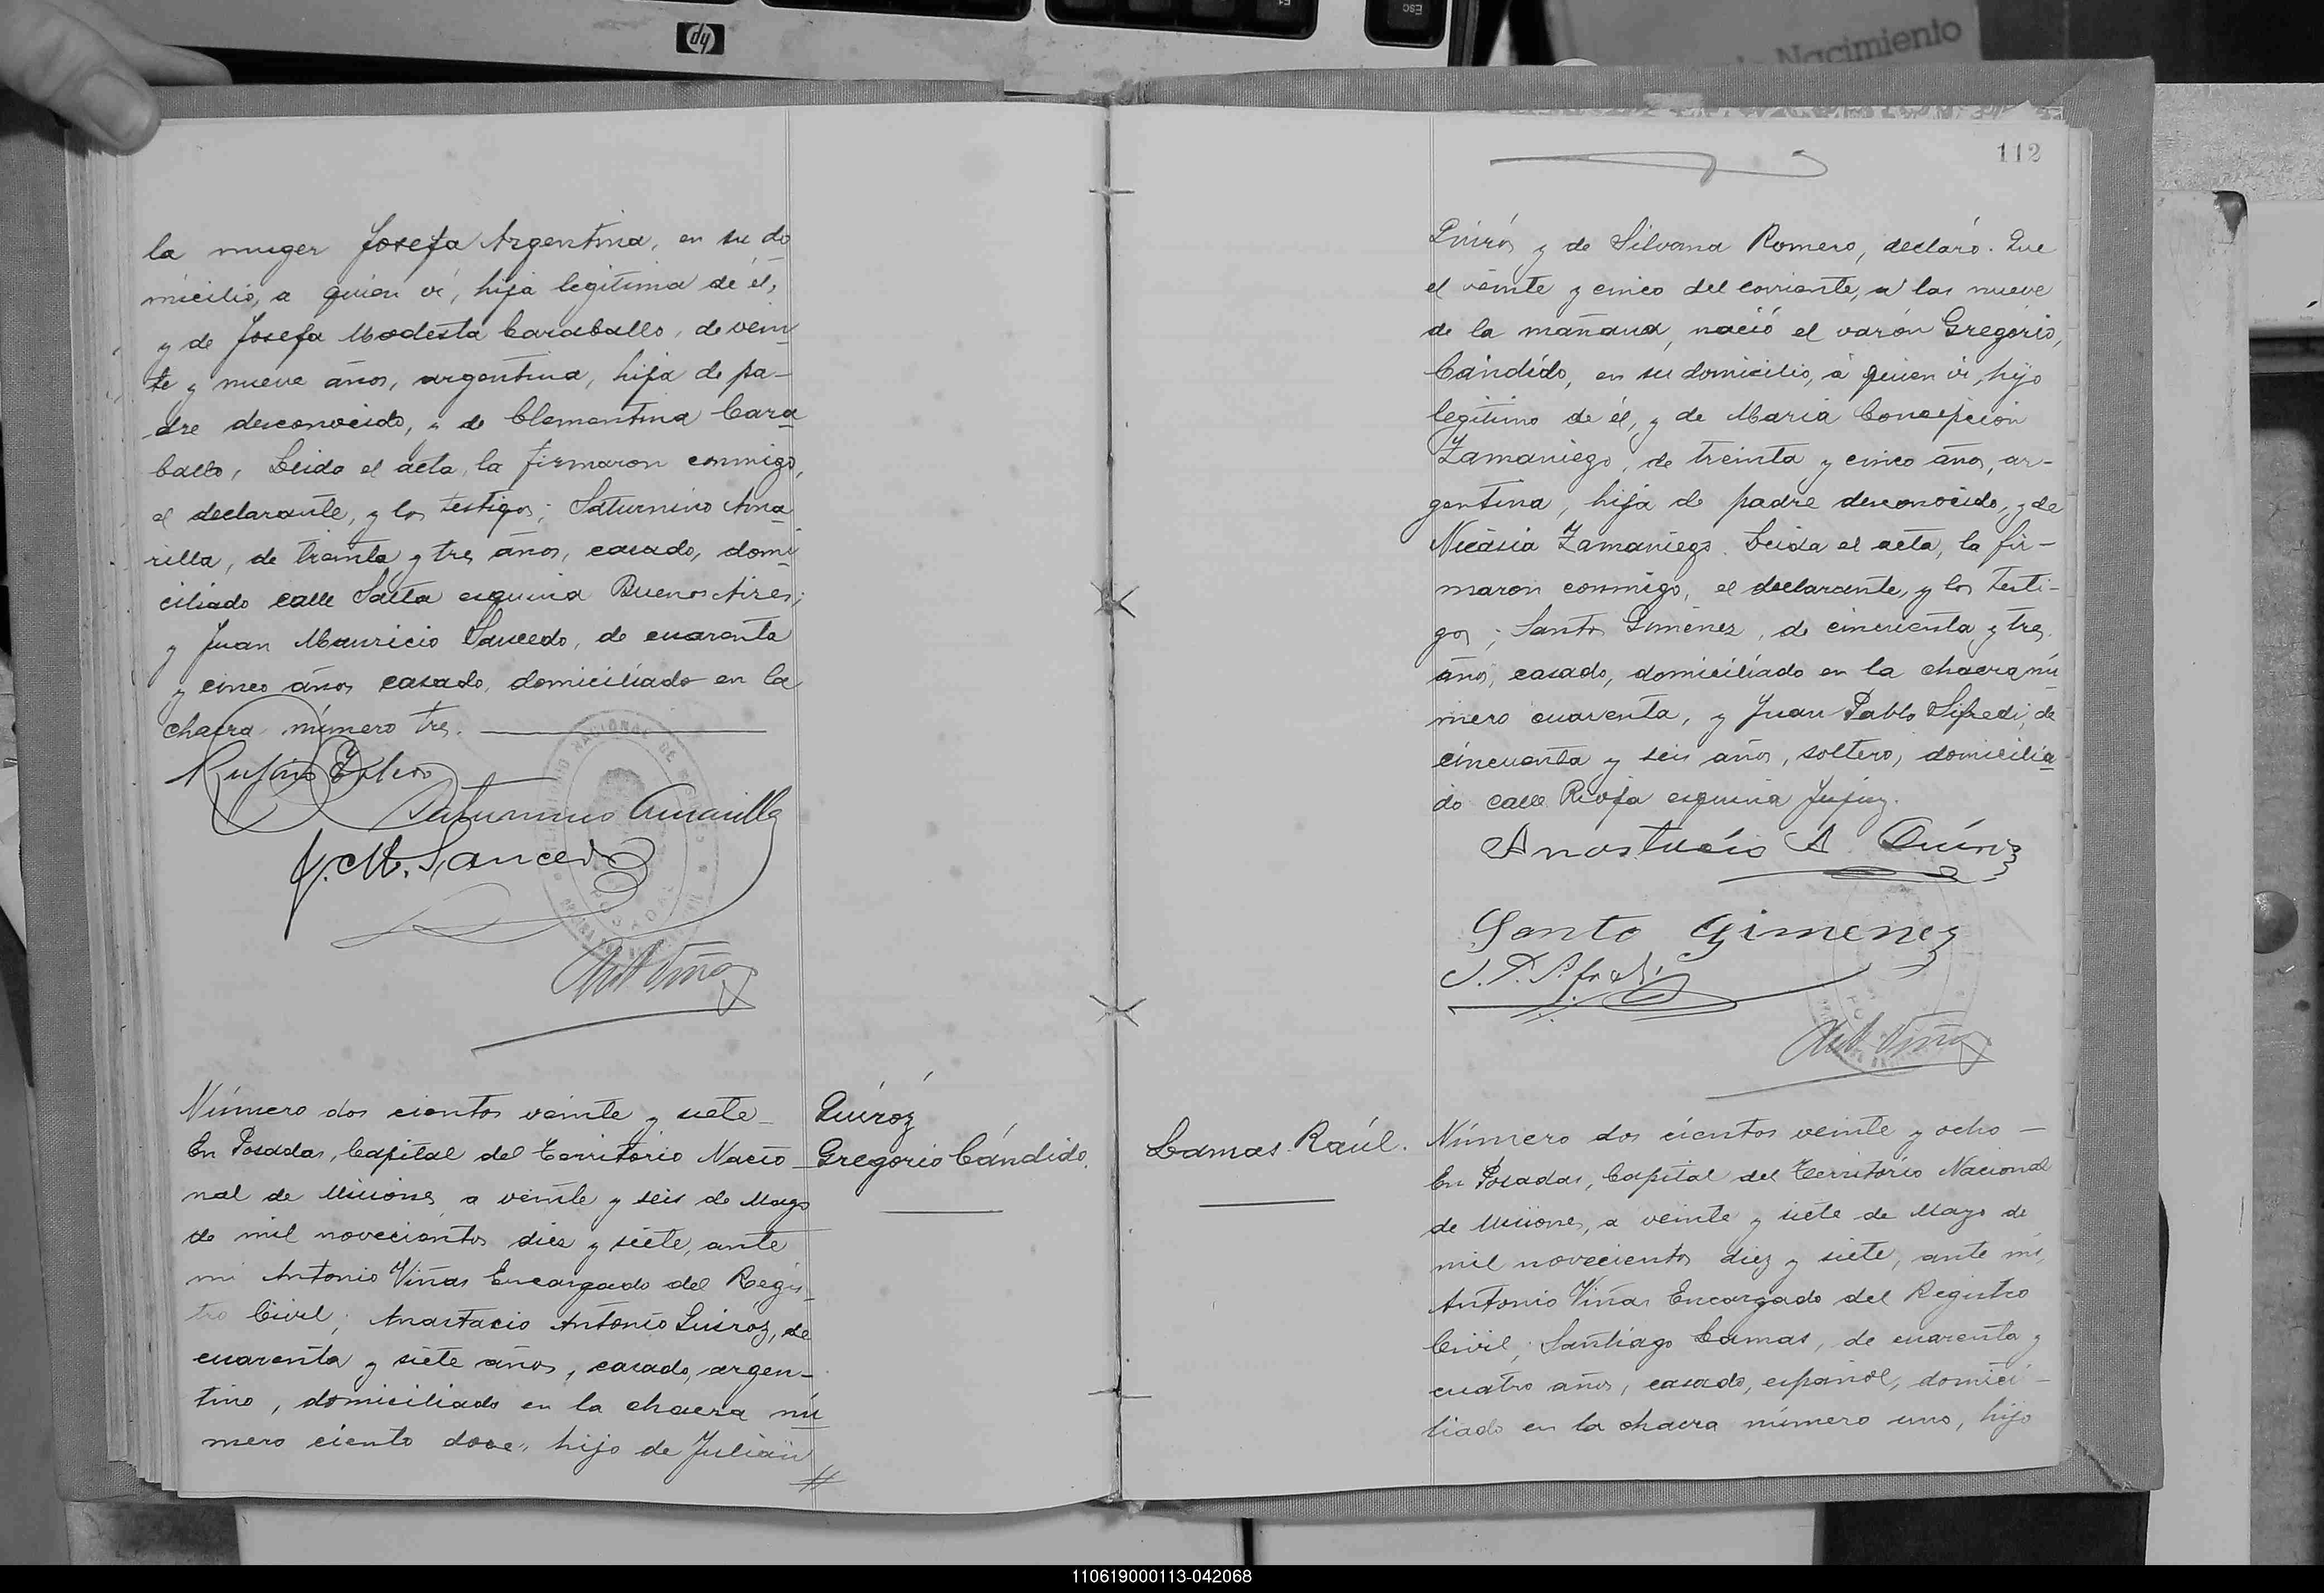 hp
ESC
Nacimiento
la muger Josefa Argentina, en su do
micilio, a quien vi, hija legitima de él,
y de Josefa Modesta Caraballo, de vein
te y nueve años, argentina, hija de pa-
dre desconocido, y de Clementina Cara
ballo, Leida el acta, la firmaron conmigo,
el declarante, y los testigos; Saturnino Ama
rilla, de treinta y tres años, casado, domi
ciliado calle Salta esquina Buenos Aires;
y Juan Mauricio Saucedo, de cuarenta
y cinco años casado, domiciliado en la
chacra número tres.
Saturnino Amarilla
J. M. Saucedo
Ant Viñas
Número dos cientos veinte y siete_
En Posadas, Capital del Territorio Nacio
nal de Misiones, a veinte y seis de Mayo
de mil novecientos diez y siete, ante
mi Antonio Viñas Encargado del Regis
tro Civil; Anastacio Antonio Quiróz, de
cuarenta y siete años, casado, argen-
tino, domiciliado en la chacra nú
mero ciento doce, hijo de Julián
Quiróz
Gregorio Cándido.
112
Quirós y de Silvana Romero, declaró. Que
el veinte y cinco del corriente, a las nueve
de la mañana, nació el varón Gregorio,
Cándido, en su domicilio, a quien vi, hijo
legitimo de él, y de María Concepción
Zamaniego, de treinta y cinco años, ar-
gentina, hija de padre desconocido, y de
Nicásia Zamaniego. Leida el acta, la fir-
maron conmigo, el declarante, y los testi-
gos; Santos Gimenez, de cincuenta y tres
años, casado, domiciliado en la chacra nú
mero cuarenta, y Juan Pablo Sifredi, de
cincuenta y seis años, soltero, domicilia
do calle Rioja esquina Jujuy.
Anastacio A Quiroz
Santo Gimenez
J. P. Sifredi
Ant Viñas
Lamas Raúl.
Número dos cientos veinte y ocho —
En Posadas, Capital del Territorio Nacional
de Misiones, a veinte y siete de Mayo de
mil novecientos diez y siete, ante mi,
Antonio Viñas Encargado del Registro
Civil; Santiago Lamas, de cuarenta y
cuatro años, casado, español, domici-
liado en la chacra número uno, hijo
110619000113-042068